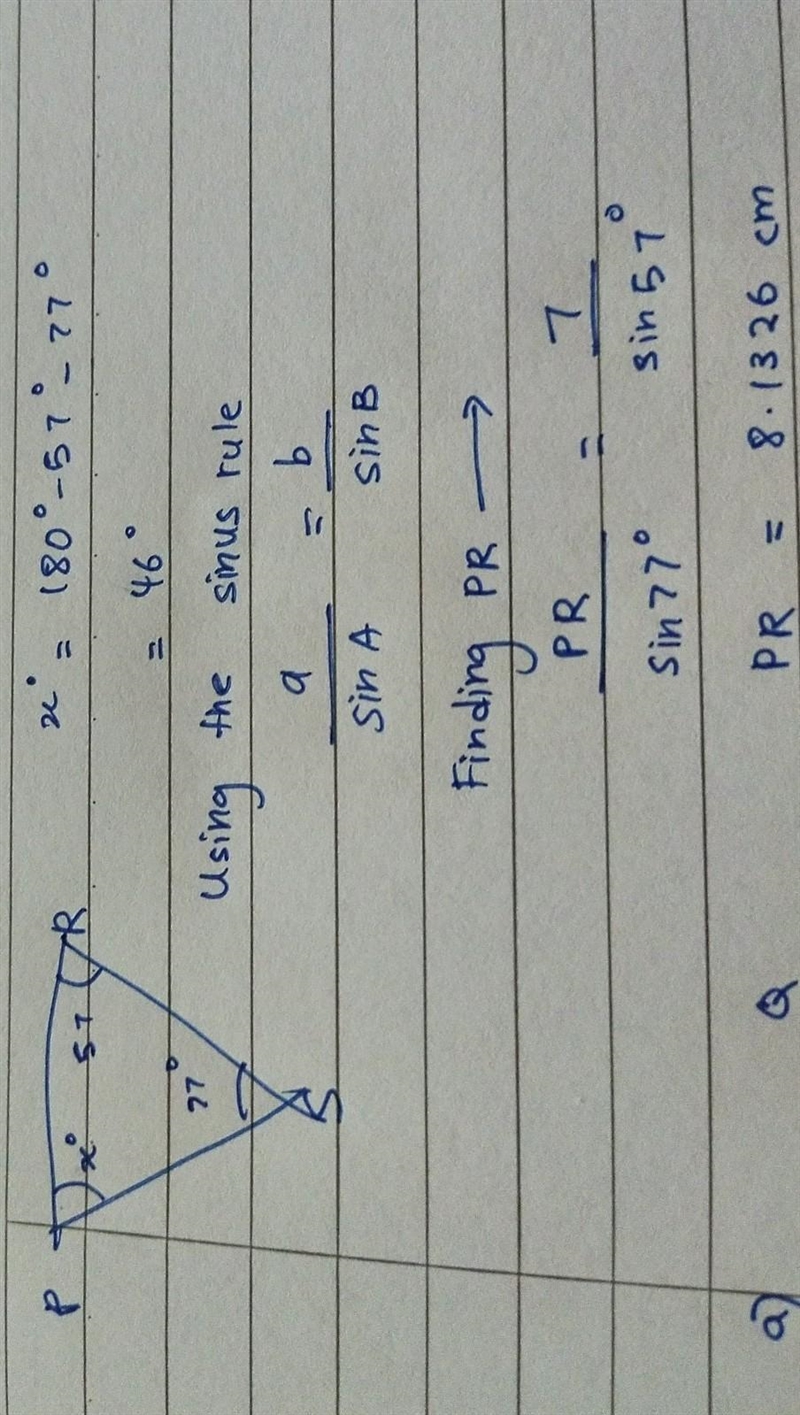 P R
x° 57
77°
S
x° = 180° - 57° - 77°
= 46°
Using the sinus rule
a = b
Sin A sin B
Finding PR →
PR = 7
Sin 77° sin 57°
PR = 8.1326 cm
a) Q